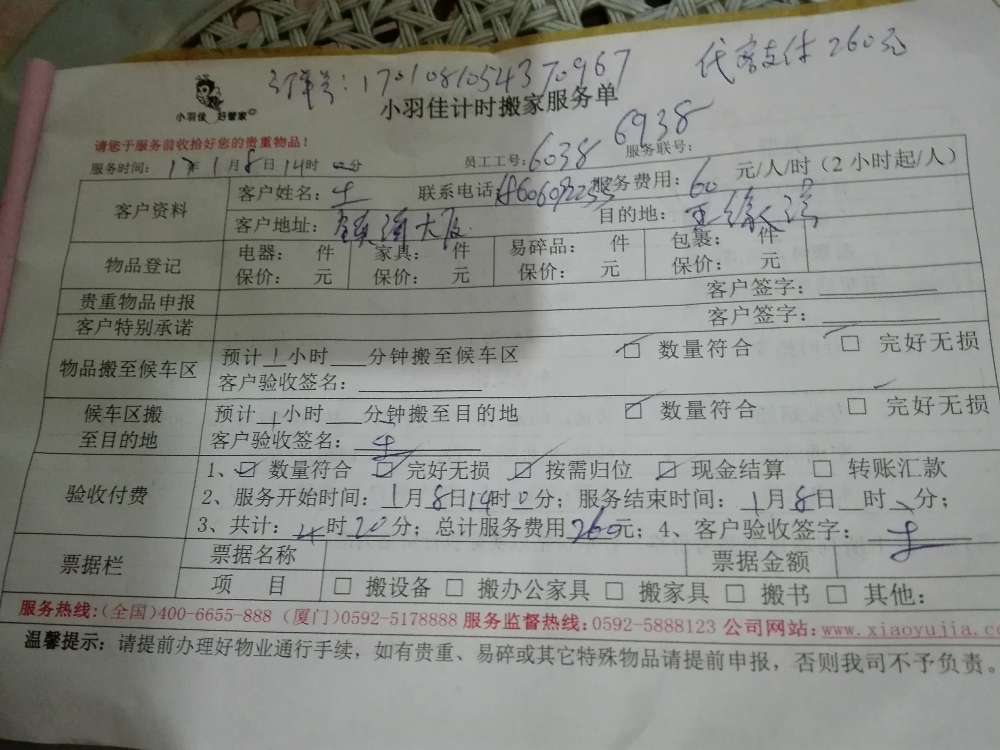 订单号：170108105437 0967 代客支付260元
小羽佳 好管家
小羽佳计时搬家服务单
请您于服务前收拾好您的贵重物品！
服务时间：17年1月8日14时 分 员工工号：6038 6938 服务联号：
客户资料 客户姓名：王 联系电话： 服务费用：60元/人/时（2小时起/人）
客户地址： 目的地：
物品登记 电器： 件 家具： 件 易碎品： 件 包裹： 件
保价： 元 保价： 元 保价： 元 保价： 元
贵重物品申报 客户签字：
客户特别承诺 客户签字：
物品搬至候车区 预计1小时 分钟搬至候车区 数量符合 完好无损
客户验收签名：
候车区搬至目的地 预计1小时 分钟搬至目的地 数量符合 完好无损
客户验收签名：
验收付费 1、数量符合 完好无损 按需归位 现金结算 转账汇款
2、服务开始时间：1月8日14时0分；服务结束时间：1月8日 时 分；
3、共计： 时20分；总计服务费用260元；4、客户验收签字：
票据栏 票据名称 票据金额
项 目 □ 搬设备 □ 搬办公家具 □ 搬家具 □ 搬书 □ 其他：
服务热线:(全国)400-6655-888 (厦门)0592-5178888 服务监督热线:0592-5888123 公司网站:www.xiaoyujia.co
温馨提示：请提前办理好物业通行手续，如有贵重、易碎或其它特殊物品请提前申报，否则我司不予负责。